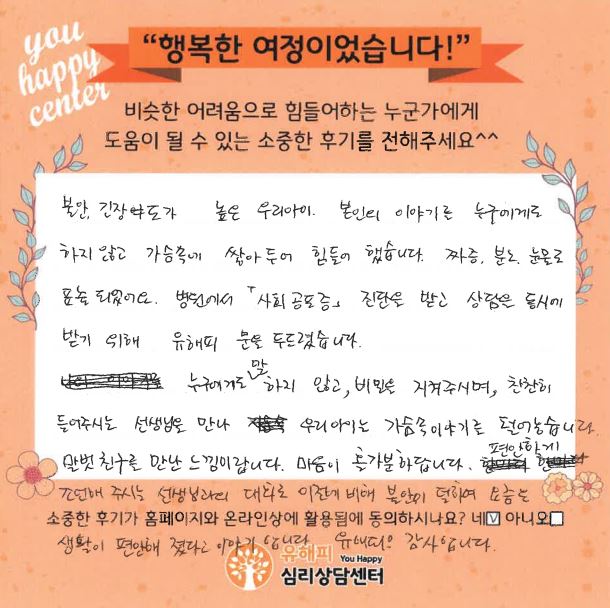 you
happy
center
“행복한 여정이었습니다!”
비슷한 어려움으로 힘들어하는 누군가에게
도움이 될 수 있는 소중한 후기를 전해주세요^^
불안, 긴장약도가 높은 우리아이. 본인의 이야기를 누구에게도
하지 않고 가슴속에 쌓아두어 힘들어 했습니다. 짜증, 분노, 눈물로
표출 되었어요. 병원에서 「사회공포증」 진단을 받고 상담을 동시에
받기 위해 유해피 문을 두드렸습니다.
누구에게도 말 하지 않고, 비밀은 지켜주시며, 찬찬히
들어주시는 선생님을 만나 우리아이는 가슴속이야기를 털어놓습니다.
말벗친구를 만난 느낌이랍니다. 마음이 홀가분하답니다. 편안하게
표현해 주시는 선생님과의 대화로 이전에 비해 불안이 덜하여 요즘은
소중한 후기가 홈페이지와 온라인상에 활용됨에 동의하시나요? 네☑ 아니오☐
생활이 편안해 졌다고 이야기 합니다. 유해피의 감사합니다.
유해피 You Happy
심리상담센터